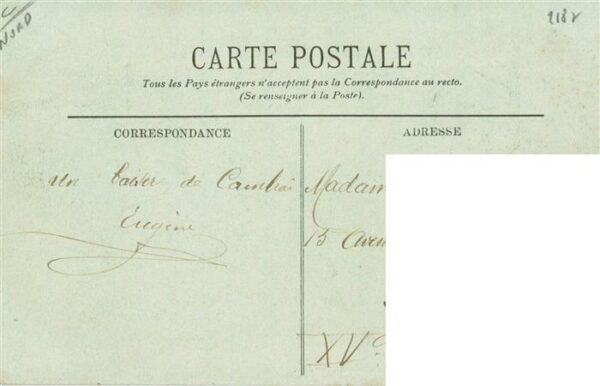 NORD
2182
CARTE POSTALE
Tous les Pays étrangers n'acceptent pas la Correspondance au recto.
(Se renseigner à la Poste).
CORRESPONDANCE
ADRESSE
un baiser de Cambrai
Eugène
Madam
15 Aven
XVe